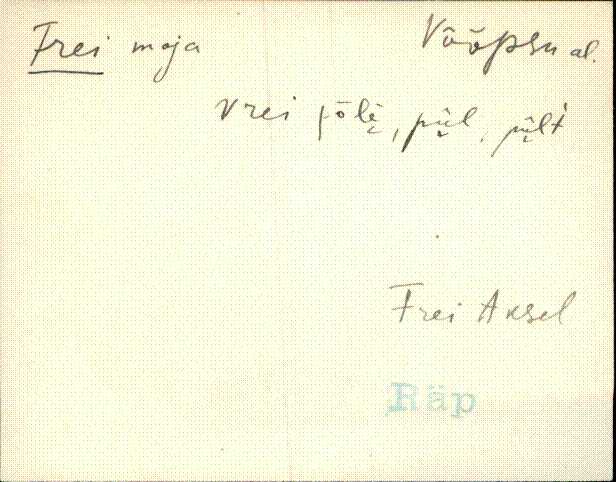 Frei maja Võõpsu al.
vrei põlè̬, pi̬i̬l, pi̬i̬lt
Frei Aksel
Räp